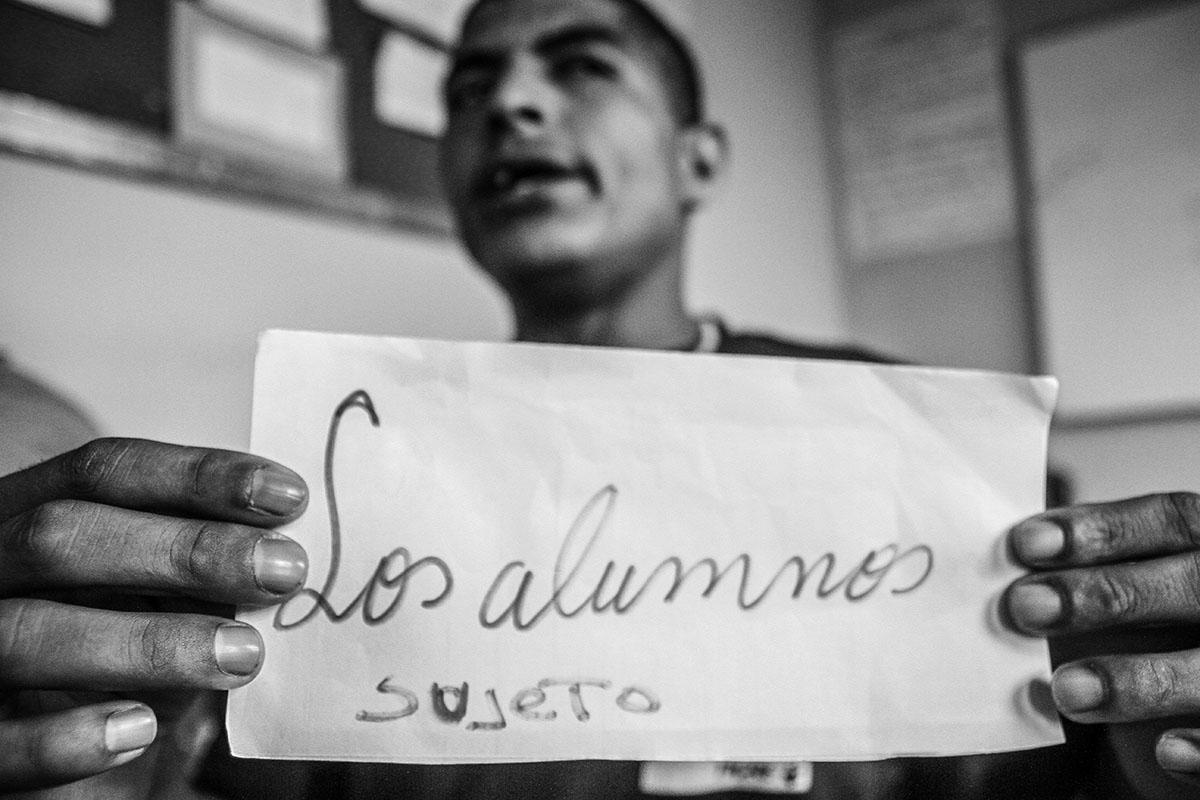 Los alumnos
sujeto